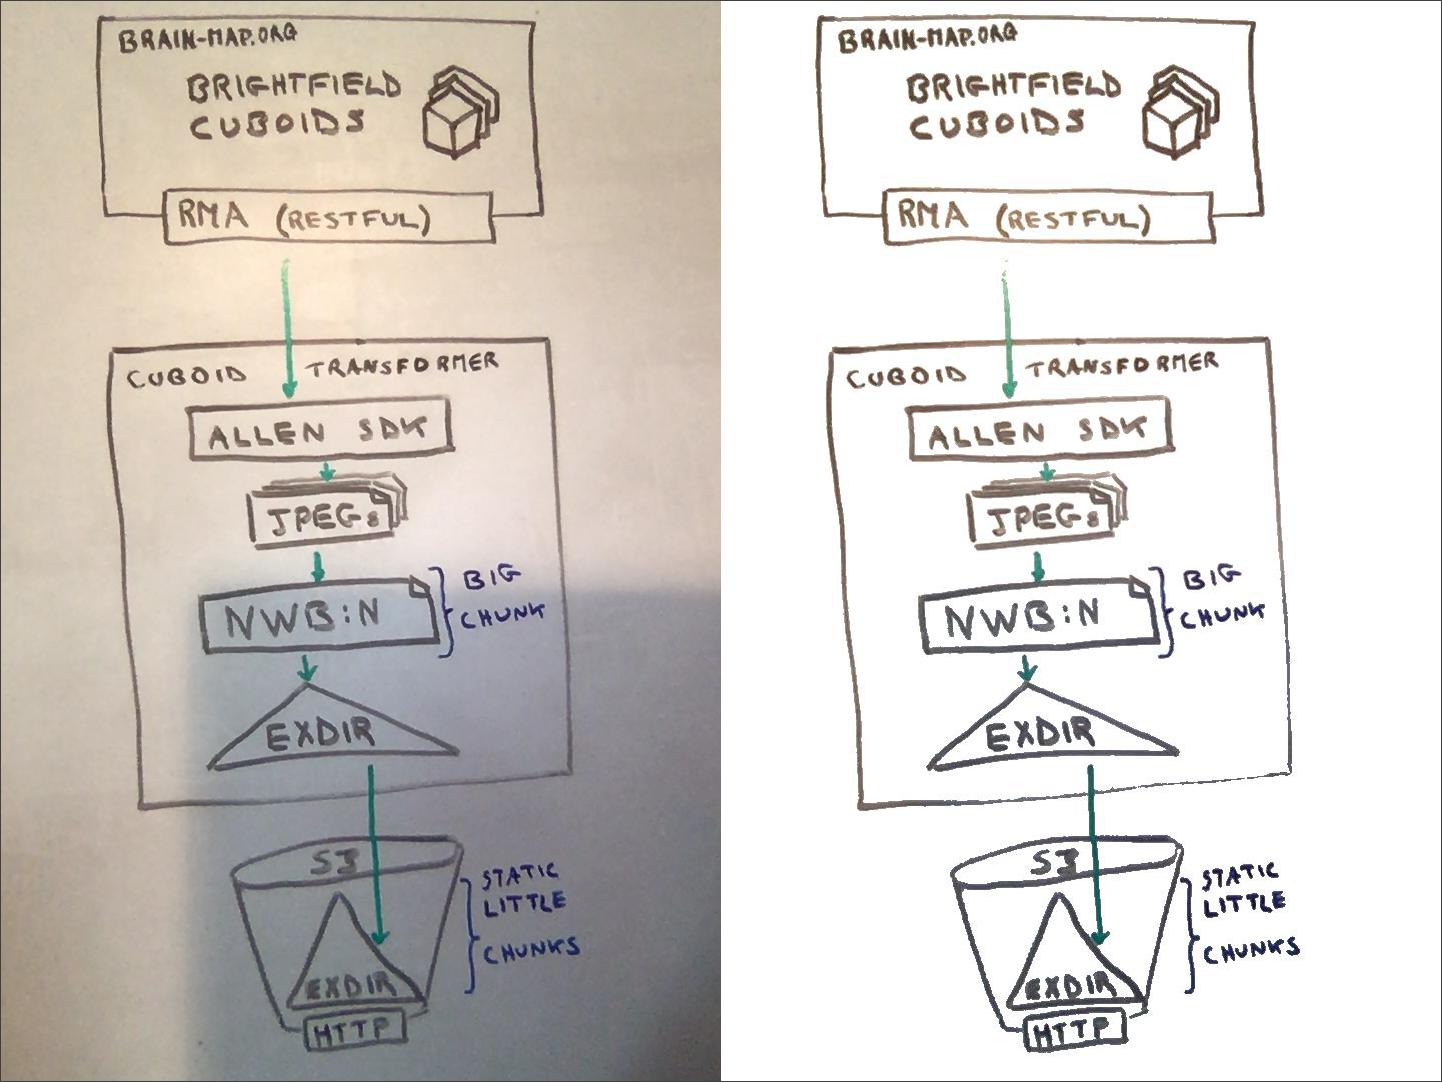 BRAIN-MAP.ORG
BRIGHTFIELD
CUBOIDS
RMA (RESTFUL)
CUBOID TRANSFORMER
ALLEN SDK
JPEGs
NWB:N
BIG
CHUNK
EXDIR
S3
STATIC
LITTLE
CHUNKS
EXDIR
HTTP
BRAIN-MAP.ORG
BRIGHTFIELD
CUBOIDS
RMA (RESTFUL)
CUBOID TRANSFORMER
ALLEN SDK
JPEGs
NWB:N
BIG
CHUNK
EXDIR
S3
STATIC
LITTLE
CHUNKS
EXDIR
HTTP